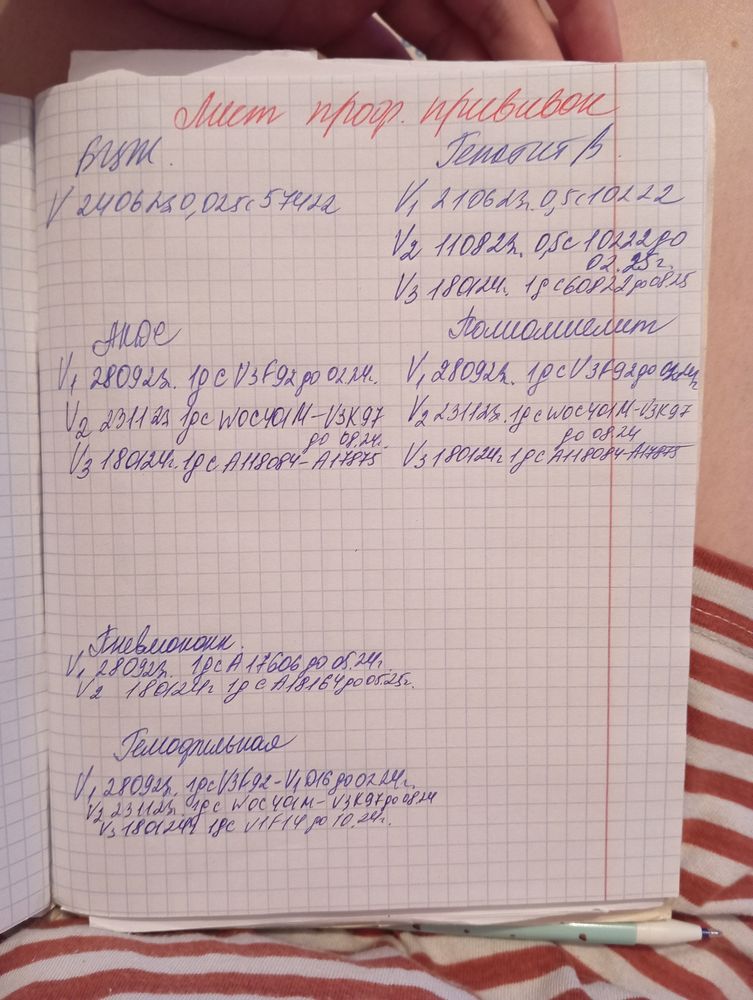 Лист проф. прививок
БЦЖ.
V 240623 0,025с 57422
Гепатит В.
V1 210623г. 0,5с10222
V2 110823г. 0,5с 10222 до
02.25г.
V3 180124г. 1д с60822 до 08.25
АКДС
V1 280923г. 1д с V3F92 до 02.24г.
V2 231123 1дс W0C401M-V3K97
до 08.24г.
V3 180124г. 1д с А118084-А17875
Полиомиелит
V1 280923г. 1д с V3F92 до 02.24г.
V2 231123г. 1д с W0C401M-V3K97
до 08.24
V3 180124г 1д с А118084-А17875
Пневмококк.
V1 280923г. 1д с А17606 до 05.24г.
V2 180124г 1д с А18164 до 05.25г.
Гемофильная
V1 280923г. 1д с V3F92-V1D16 до 02.24г.
V2 231123г. 1д с W0C401M-V3K97 до 08.24
V3 180124г 1дс V1F14 до 10.24г.